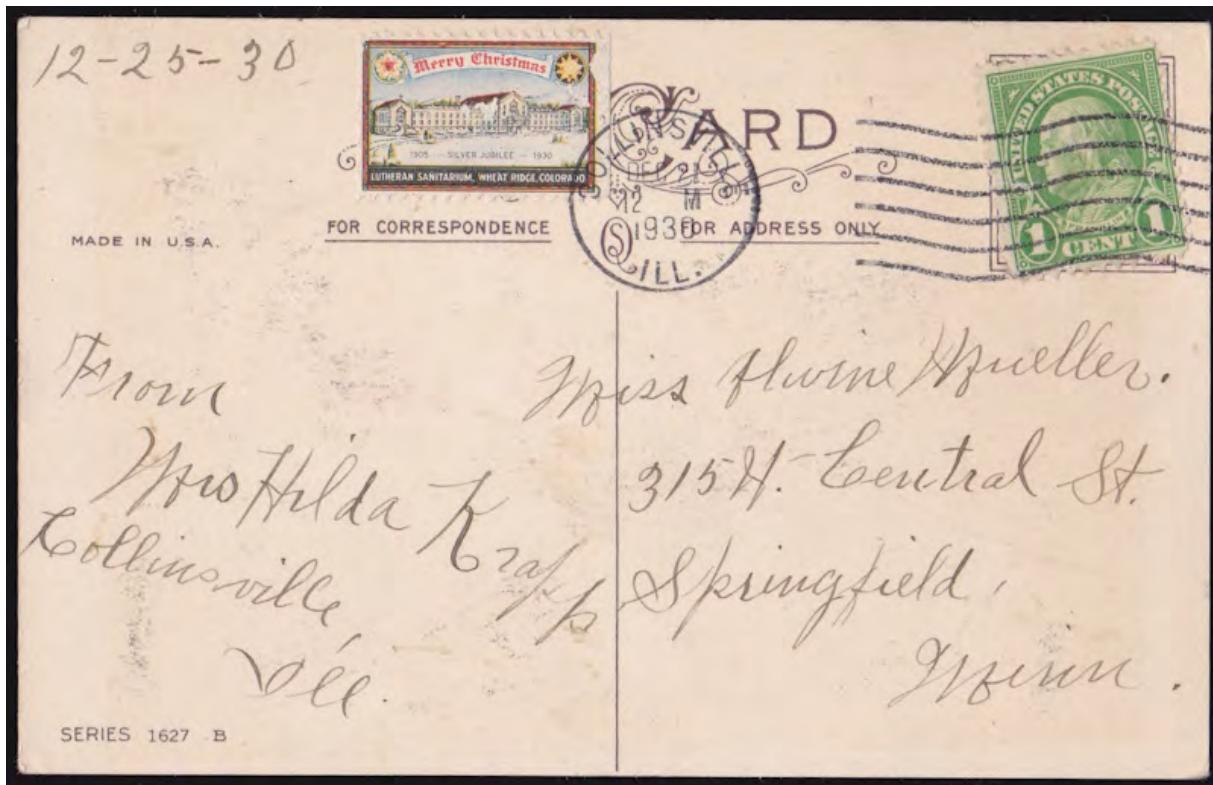 12-25-30
Merry Christmas
1905 — SILVER JUBILEE — 1930
LUTHERAN SANITARIUM, WHEAT RIDGE, COLORADO
ARD
COLLINSVILLE
DEC 21
12 M
1930
ILL.
UNITED STATES POSTAGE
1 CENT 1
MADE IN U.S.A.
FOR CORRESPONDENCE
FOR ADDRESS ONLY
From
Mrs Hilda Krapp
Collinsville,
Ill.
Miss Alwine Mueller.
315 N. Central St.
Springfield,
Minn.
SERIES 1627 B